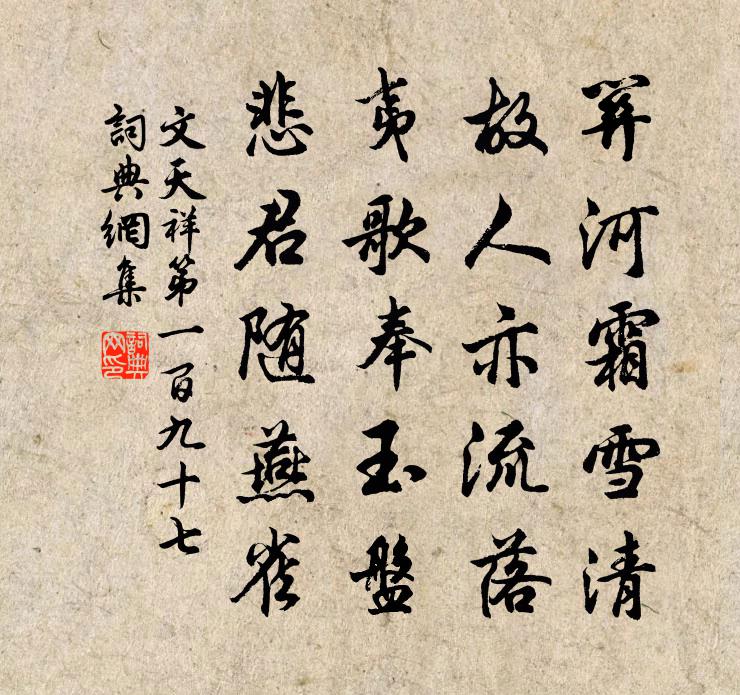 关河霜雪清
故人亦流落
夷歌奉玉盤
悲君随燕雀
文天祥第一百九十七
詞典網集
詞典网印